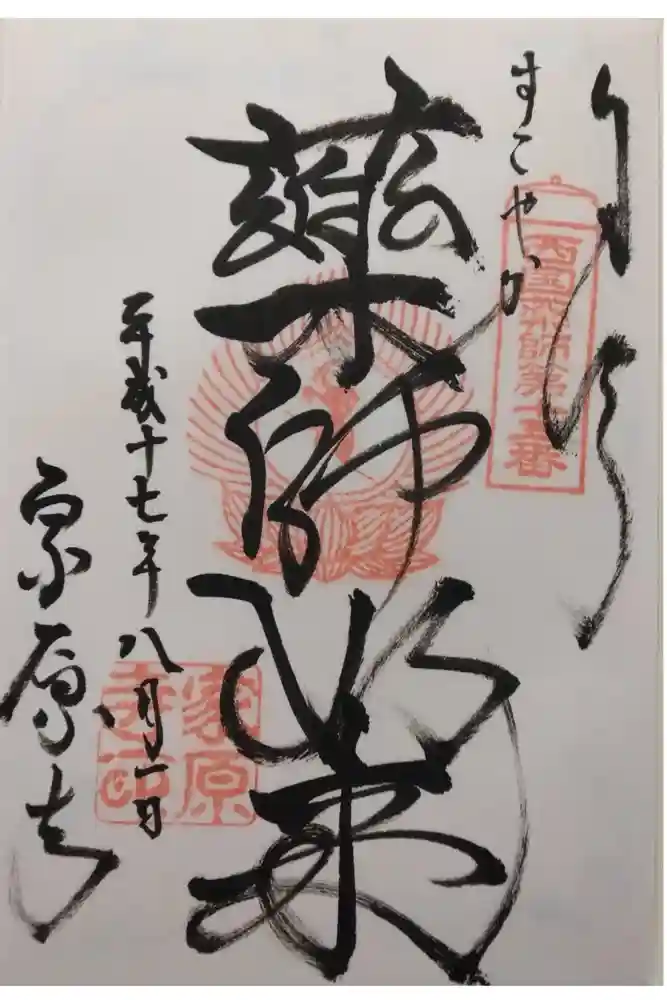 奉拝
すこやか
西国薬師第十五番
薬師如来
平成十七年八月一日
家原寺
家原寺印